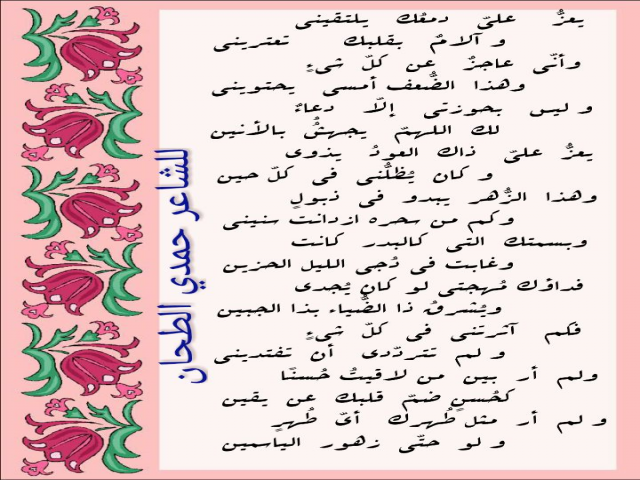 يعزُّ علىّ دمعُك يلتقينى
و آلامٌ بقلبك تعترينى
وأنّى عاجزٌ عن كلّ شىءٍ
وهذا الضُّعف أمسى يحتوينى
و ليس بحوزتى إلّا دعاءٌ
لك اللهمّ يجهشُ بالأنين
يعزُّ علىّ ذاك العودُ يذوى
و كان يُظلُّنى فى كلّ حين
وهذا الزُّهر يبدو فى ذبولٍ
وكم من سحره ازدانت سنينى
وبسمتك التى كالبدر كانت
وغابت فى دُجى الليل الحزين
فداؤك مُهجتى لو كان يُجدى
ويُشرقُ ذا الضُّياء بذا الجبين
فكم آثرتنى فى كلّ شىءٍ
و لم تتردّدى أن تفتدينى
ولم أر بين من لاقيتُ حُسنًا
كحُسنٍ ضمّ قلبك عن يقين
و لم أر مثل طُهرك أىّ طُهرٍ
و لو حتّى زهور الياسمين
للشاعر حمدي الطحان